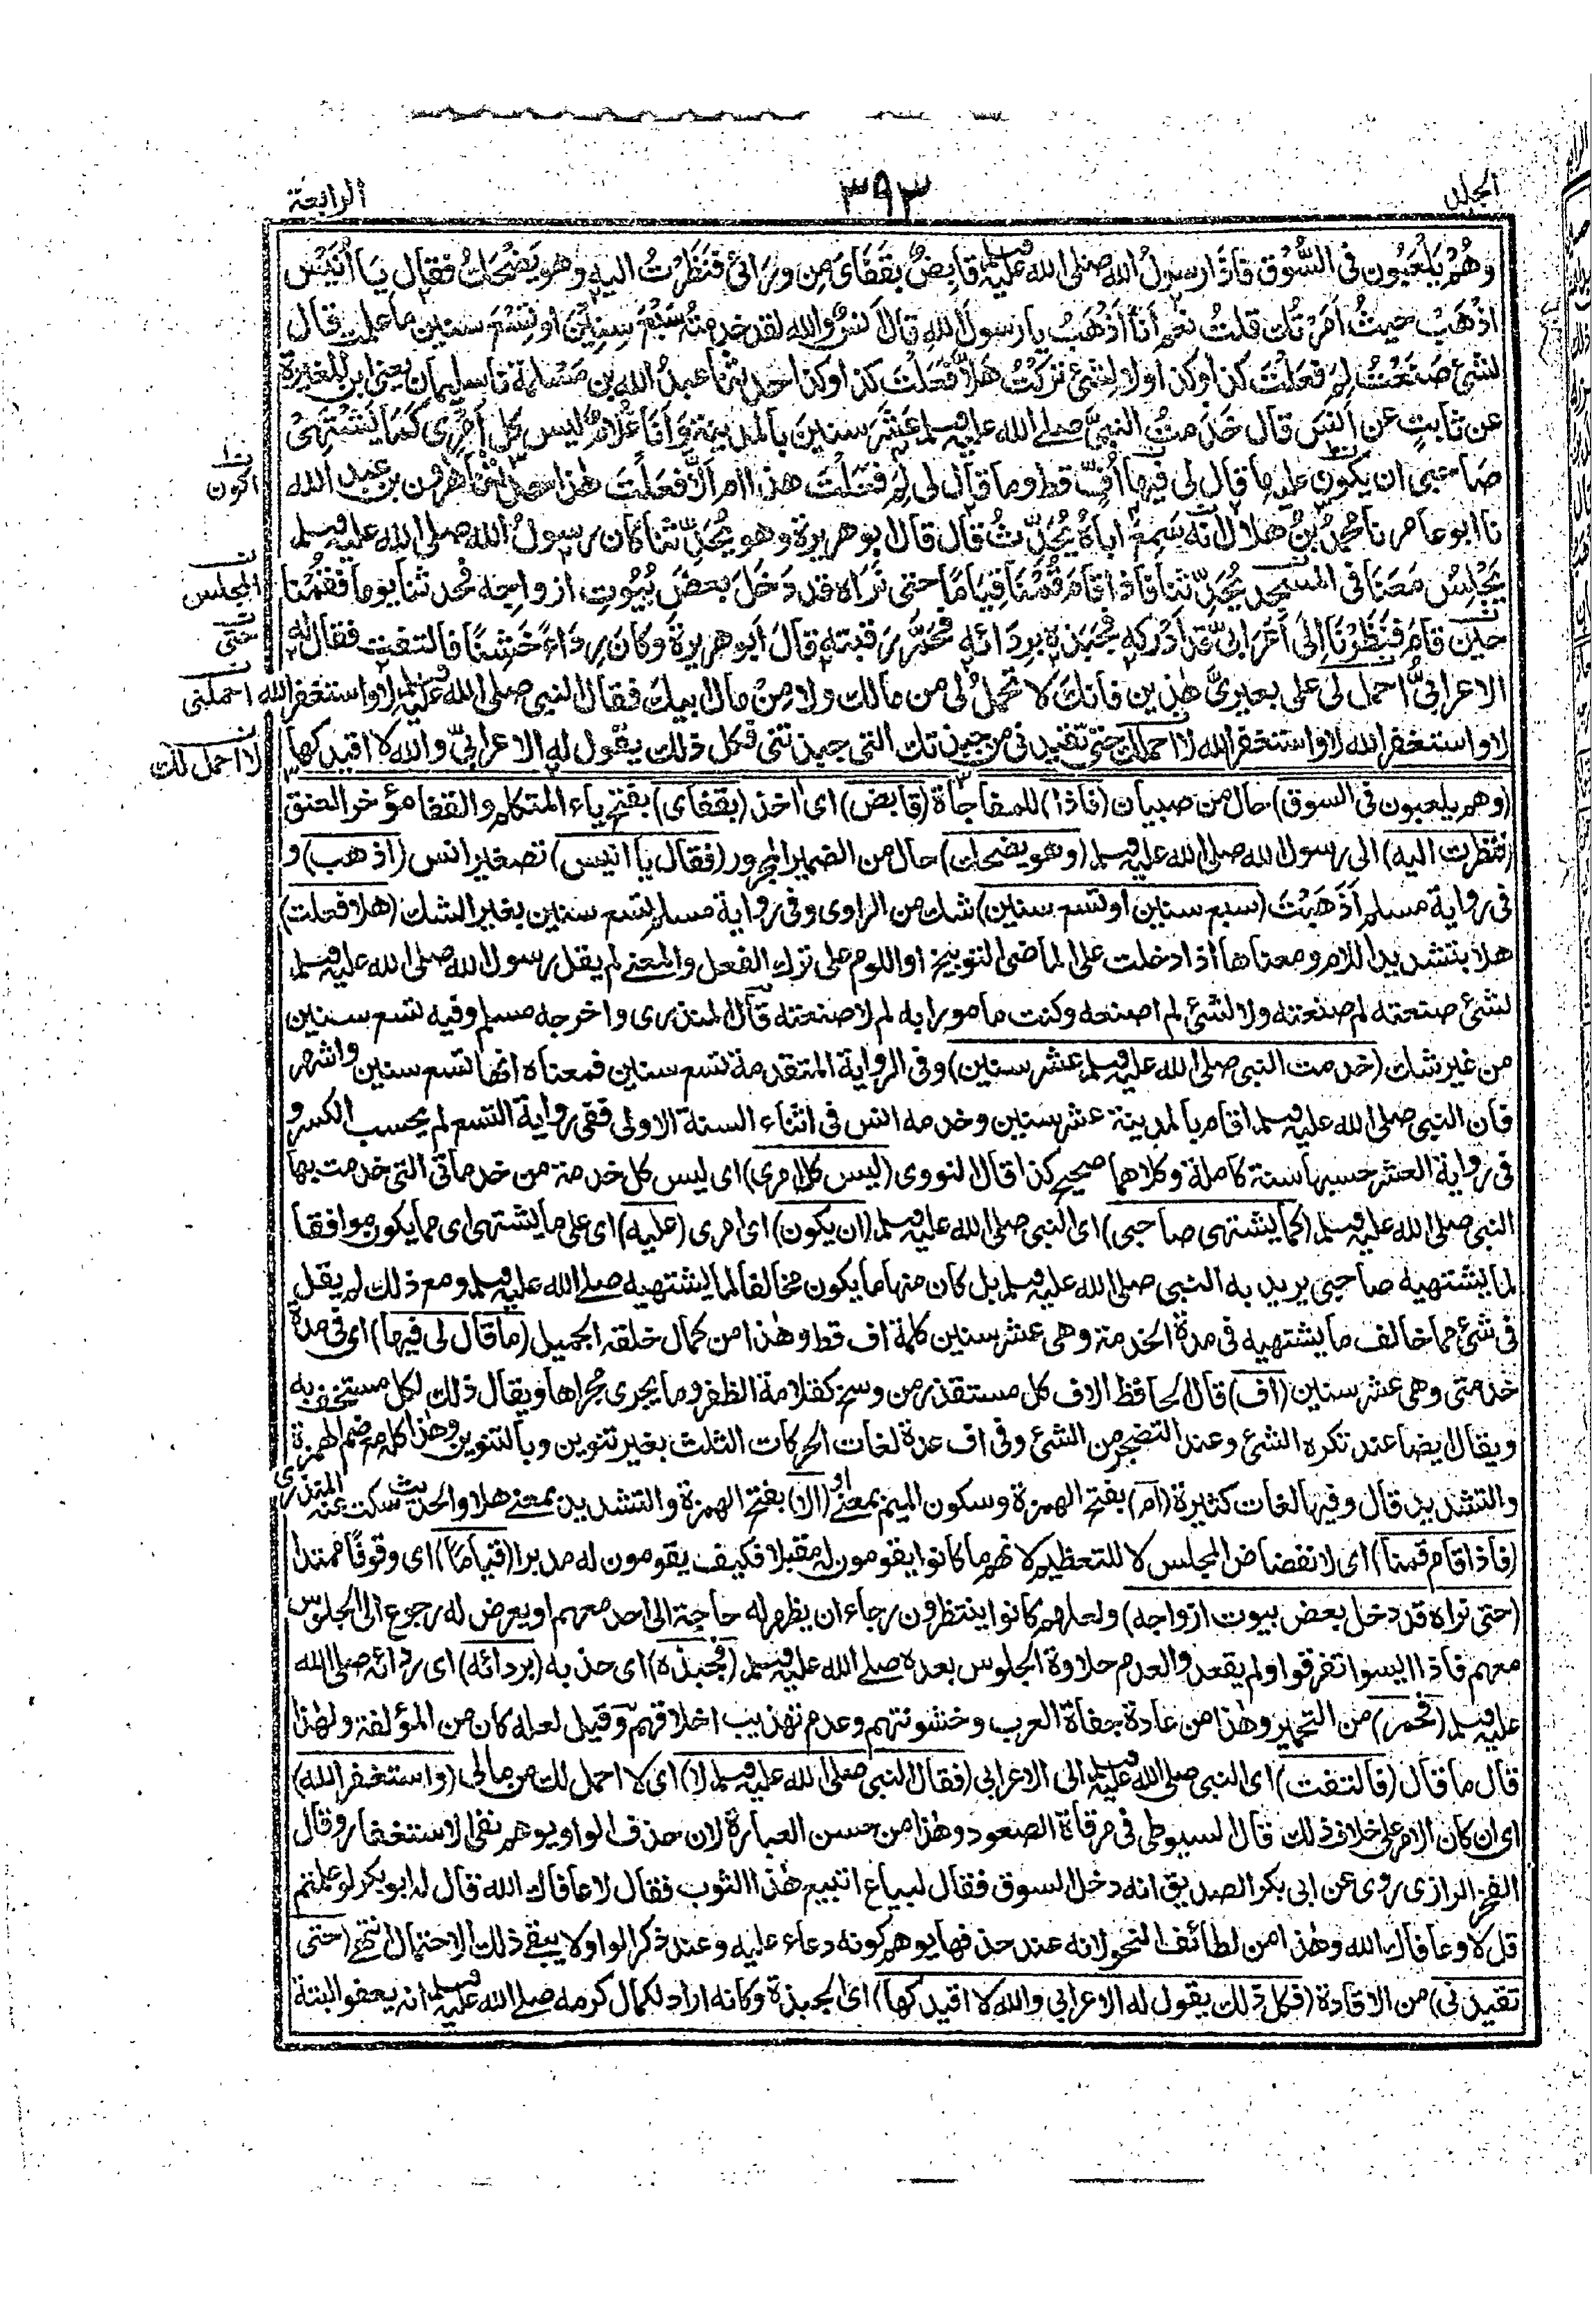 المجلد
٣٩٣
الرابعة
وهُمْ يَلْعَبُون فى السُّوْق فاذا رسولُ الله صلى الله عليه وسلم قابِضٌ بقَفَاىَ مِن ورائى فنَظَرْتُ اليه وهو يَضْحَكُ فقال يا أُنَيْس
اذْهَبْ حيثُ اَمَرْتُك قلتُ نعم أنا أذْهَبُ يا رسولَ اللهِ قال اَنسٌ والله لقد خدمتُه سَبْعَ سِنِيْنَ او تِسْعَ سنين ما علمت قال
لشئ صَنَعْتُ لِمَ فعَلْتَ كذا وكذا ولا لِشئ تركْتُ هَلَّا فَعَلْتَ كذا وكذا حدثنا عبدُ الله بن مَسْلمة نا سليمان يعنى ابن المغيرة
عن ثابتٍ عن اَنس قال خَدَمتُ النبىَّ صلى الله عليه وسلم عَشْرَ سنين بالمدينة وَاَنا غُلامٌ ليس كل اَمْرِى كما يَشْتَهِىْ
صاحبى ان يكون عليه ما قال لى فيها اُفٍّ قط وما قال لى لِمَ فَعَلْتَ هذا ام اَلَّا فَعَلْتَ هذا حدثنا هٰرون بن عبد الله
نا ابو عامر نا محمدُ بنُ هلال انه سَمِعَ اباهُ يُحَدِّثُ قال قال ابو هريرة وهو يُحَدِّثنا كان رسولُ الله صلى الله عليه وسلم
يَجْلِسُ مَعَنَا فى المسجد يُحَدِّثنا فاذا قامَ قُمْنَا قِيَامًا حتى نَرَاه قد دَخَلَ بعضَ بُيُوتِ ازواجِه فحدثنا يوما فقُمْنا
حين قام فنَظَرْنا اِلى اَعْرَابىٍّ قد اَدْركه فجَبَذه بِرِدَائه فَحَمَّرَ رقبته قال ابو هريرة وكان رِدَاءً خَشِنًا فالتفت فقال له
الاعرابىُّ احمل لى على بعيرىَّ هٰذين فانك لا تَحْمِلُ لى من مالك ولا مِنْ مال ابيك فقال النبى صلى الله عليه وسلم لا واستغفر الله
لا واستغفر الله لا واستغفر الله لا احملك حتى تقيدنى من جبذتك التى جبذتنى فكل ذلك يقول له الاعرابىّ والله لا اقيدكها
اكون
المجلس
حتى
احملنى
لا احمل لك
(وهم يلعبون فى السوق) حال من صبيان (فاذا) للمفاجأة (قابض) اى اخذ (بقفاى) بفتح ياء المتكلم والقفا مؤخر العنق
(فنظرت اليه) الى رسول الله صلى الله عليه وسلم (وهو يضحك) حال من الضمير المجرور (فقال يا انيس) تصغير انس (اذهب) و
فى رواية مسلم اَذَهَبْتَ (سبع سنين او تسع سنين) شك من الراوى وفى رواية مسلم تسع سنين بغير الشك (هلا فعلت)
هلا بتشديد اللام ومعناها اذا دخلت على الماضى التوبيخ او اللوم على ترك الفعل والمعنى لم يقل رسول الله صلى الله عليه وسلم
لشئ صنعته لم صنعته ولا لشئ لم اصنعه وكنت مامورا به لم لا صنعته قال المنذرى واخرجه مسلم وفيه تسع سنين
من غير شك (خدمت النبى صلى الله عليه وسلم عشر سنين) وفى الرواية المتقدمة تسع سنين فمعناه انها تسع سنين واشهر
فان النبى صلى الله عليه وسلم اقام بالمدينة عشر سنين وخدمه انس فى اثناء السنة الاولى ففى رواية التسع لم يحسب الكسر و
فى رواية العشر حسبها سنة كاملة وكلاهما صحيح كذا قال النووى (ليس كل امرى) اى ليس كل خدمة من خدماتى التى خدمت بها
النبى صلى الله عليه وسلم (كما يشتهى صاحبى) اى النبى صلى الله عليه وسلم (ان يكون) اى امرى (عليه) اى على ما يشتهى اى مما يكون موافقا
لما يشتهيه صاحبى يريد به النبى صلى الله عليه وسلم بل كان منها ما يكون مخالفا لما يشتهيه صلى الله عليه وسلم ومع ذلك لم يقل
فى شئ مما خالف ما يشتهيه فى مدة الخدمة وهى عشر سنين كلمة اف قط وهٰذا من كمال خلقه الجميل (ما قال لى فيها) اى فى مدة
خدمتى وهى عشر سنين (اف) قال الحافظ الاف كل مستقذر من وسخ كقلامة الظفر وما يجرى مجراها ويقال ذلك لكل مستخف به
ويقال ايضا عند تكره الشئ وعند التضجر من الشئ وفى اف عدة لغات الحركات الثلث بغير تنوين وبالتنوين وهٰذا كله مع ضم الهمزة
والتشديد قال وفيها لغات كثيرة (ام) بفتح الهمزة وسكون الميم بمعنى او (الا) بفتح الهمزة والتشديد بمعنى هلا والحديث سكت عنه المنذرى
(فاذا قام قمنا) اى لانفضاض المجلس لا للتعظيم لانهم ما كانوا يقومون له مقبلا فكيف يقومون له مدبرا (قياما) اى وقوفًا ممتدا
(حتى نراه قد دخل بعض بيوت ازواجه) ولعلهم كانوا ينتظرون رجاء ان يظهر له حاجة الى احد معهم او يعرض له رجوع الى الجلوس
معهم فاذا ايسوا تفرقوا ولم يقعدوا لعدم حلاوة الجلوس بعده صلى الله عليه وسلم (فجبذه) اى جذبه (بردائه) اى ردائه صلى الله
عليه وسلم (فحمر) من التحمير وهٰذا من عادة جفاة العرب وخشونتهم وعدم تهذيب اخلاقهم وقيل لعله كان من المؤلفة ولهٰذا
قال ما قال (فالتفت) اى النبى صلى الله عليه وسلم الى الاعرابى (فقال النبى صلى الله عليه وسلم لا) اى لا احمل لك من مالى (واستغفر الله)
اى ان كان الامر على خلاف ذلك قال السيوطى فى مرقاة الصعود وهٰذا من حسن العبارة لان حذف الواو يوهم نفى الاستغفار وقال
الفخر الرازى روى عن ابى بكر الصديق انه دخل السوق فقال لبياع اتبيع هٰذا الثوب فقال لا عافاك الله قال له ابو بكر لو علمتم
قل لا وعافاك الله وهٰذا من لطائف النحو لانه عند حذفها يوهم كونه دعاء عليه وعند ذكر الواو لا يبقى ذلك الاحتمال انتهى (حتى
تقيدنى) من الاقادة (فكل ذلك يقول له الاعرابى والله لا اقيدكها) اى الجبذة وكانه اراد لكمال كرمه صلى الله عليه وسلم انه يعفو البتة